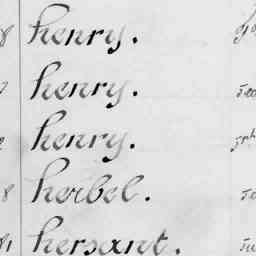 henry.
henry.
henry.
herbel.
hersant.